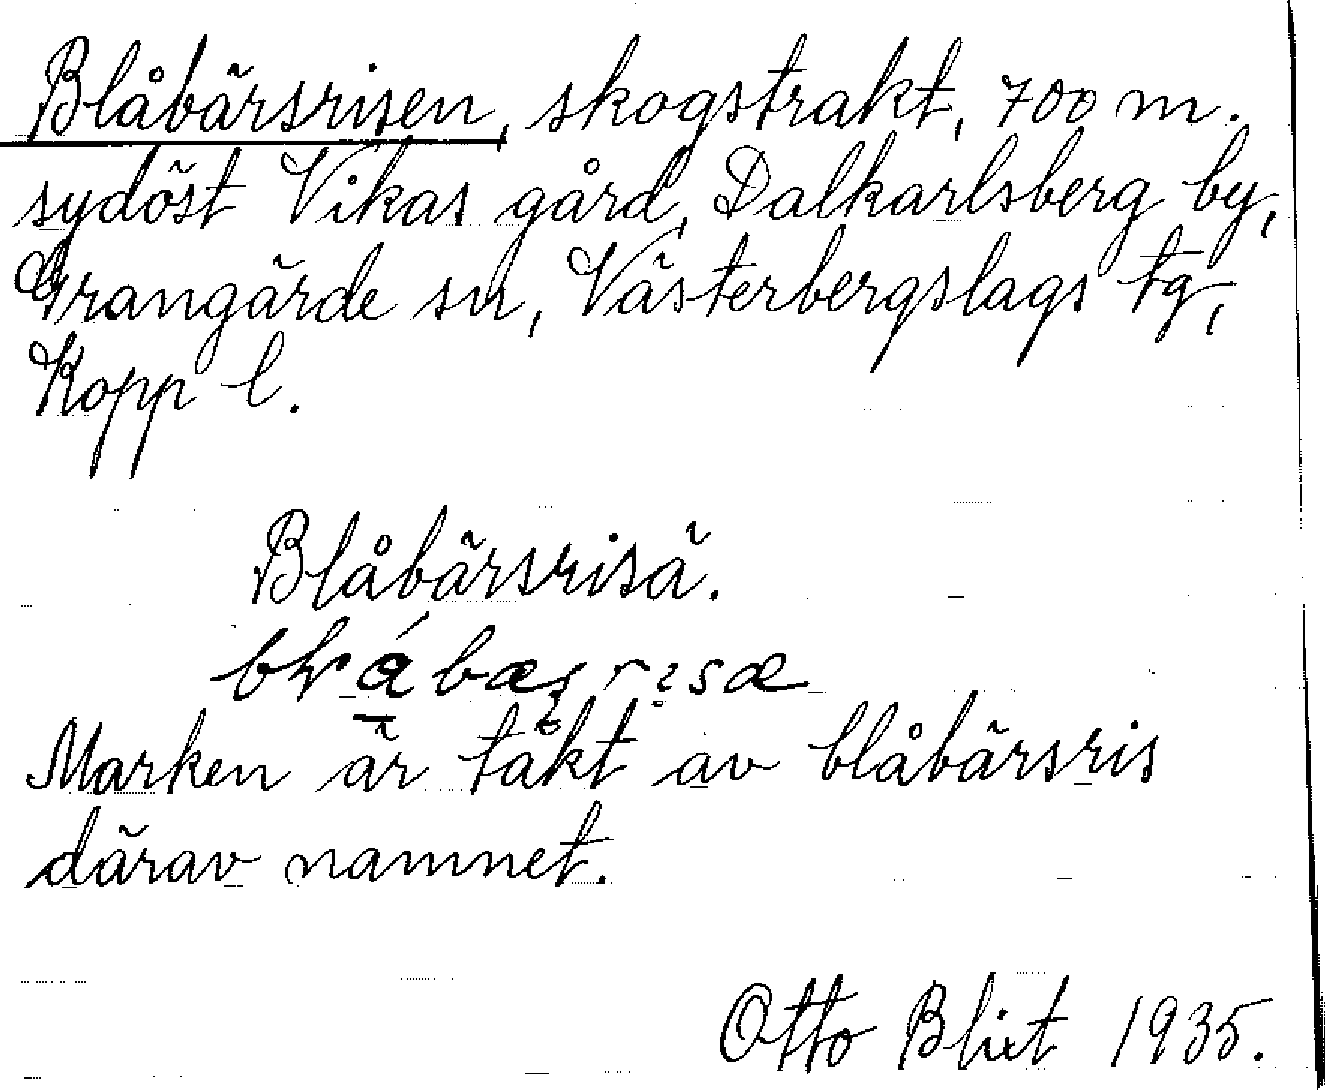 Blåbärsrisen, skogstrakt, 700 m.
sydöst Vikas gård, Dalkarlsberg by,
Grangärde sn, Västerbergslags tg,
Kopp l.
Blåbärsrisä.
Marken är täkt av blåbärsris
därav namnet.
Otto Blixt 1935.